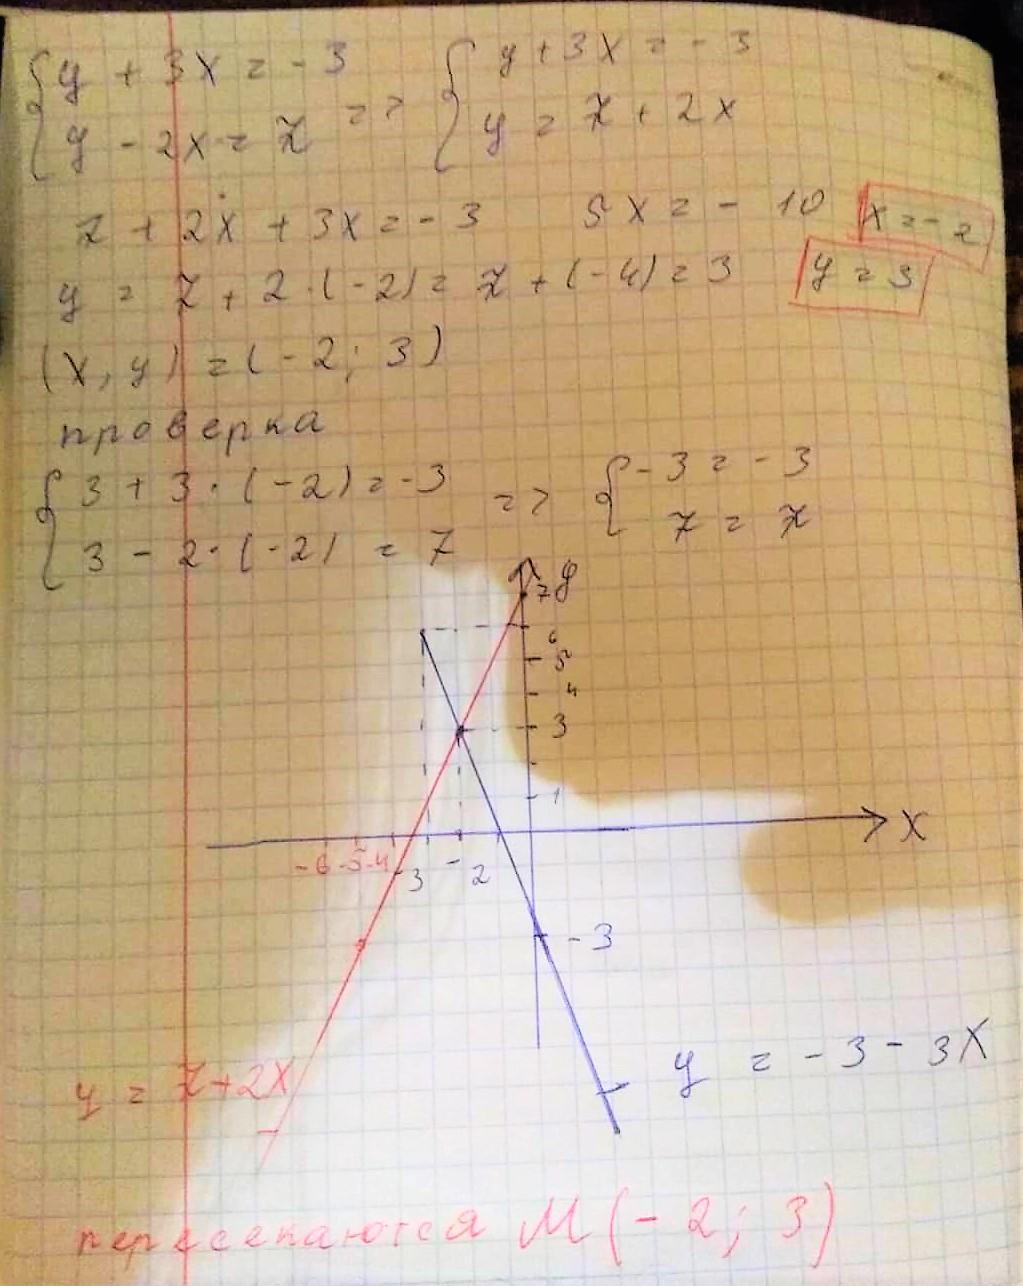 { y + 3x = - 3 { y + 3x = - 3
{ y - 2x = 7 => { y = 7 + 2x
7 + 2x + 3x = - 3 5x = - 10 x = - 2
y = 7 + 2·(-2) = 7 + (-4) = 3 y = 3
(x, y) = (- 2; 3)
проверка
{ 3 + 3·(-2) = -3 => { - 3 = - 3
{ 3 - 2·(-2) = 7 7 = 7
7 y
6
5
4
3
1
x
-6 -5 -4 -3 - 2
- 3
y = 7+2x
y = - 3 - 3x
пересекаются M(- 2; 3)